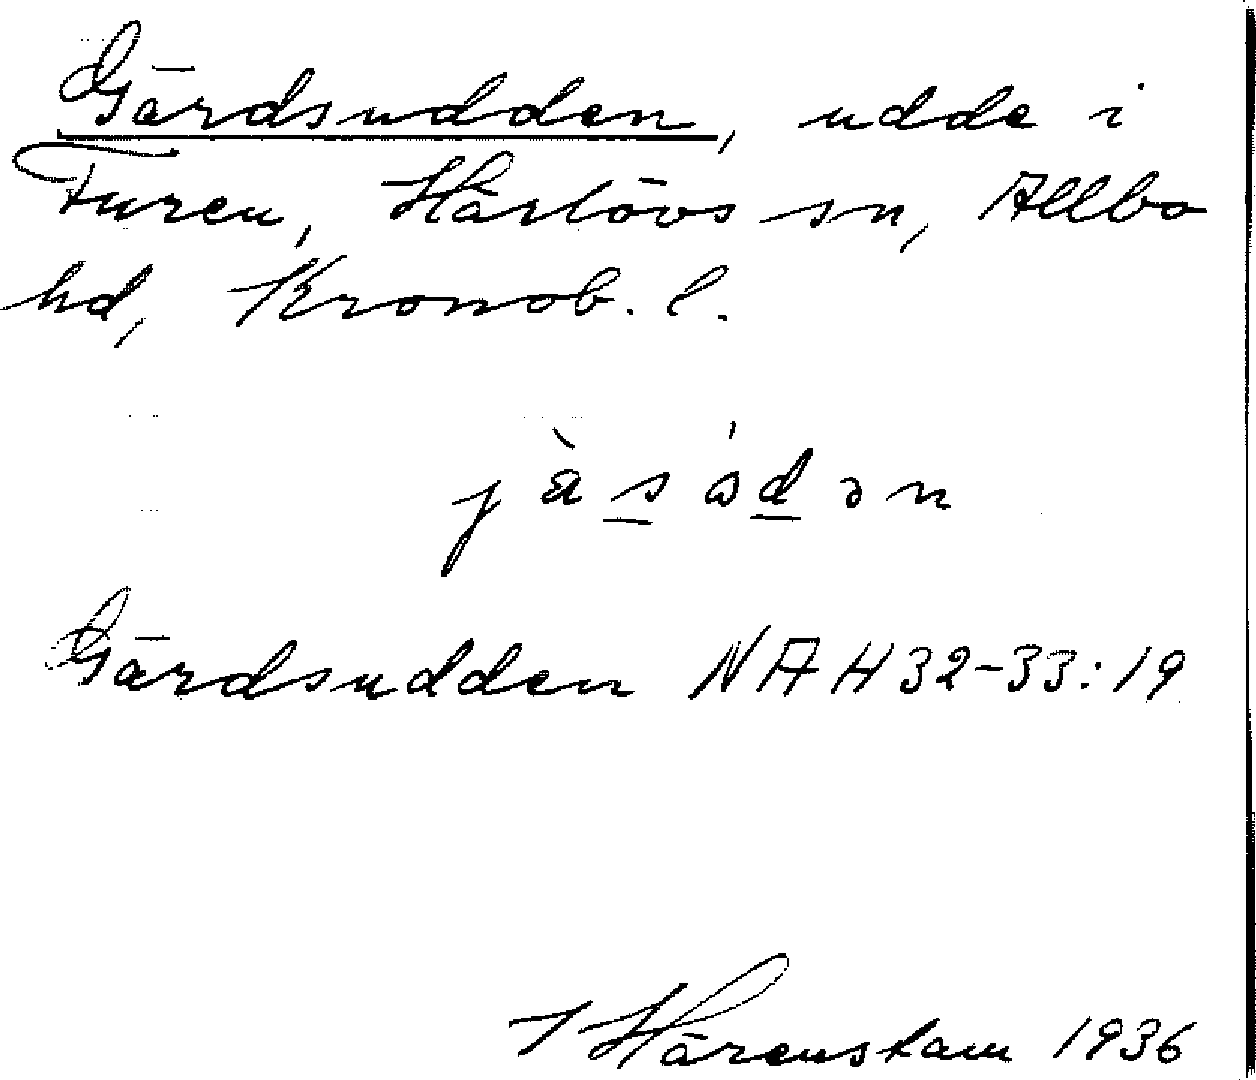 Gärdsudden, udde i
Furen, Härlövs sn, Allbo
hd, Kronob. l.
Gärdsudden NAH 32-33:19
I Härenstam 1936